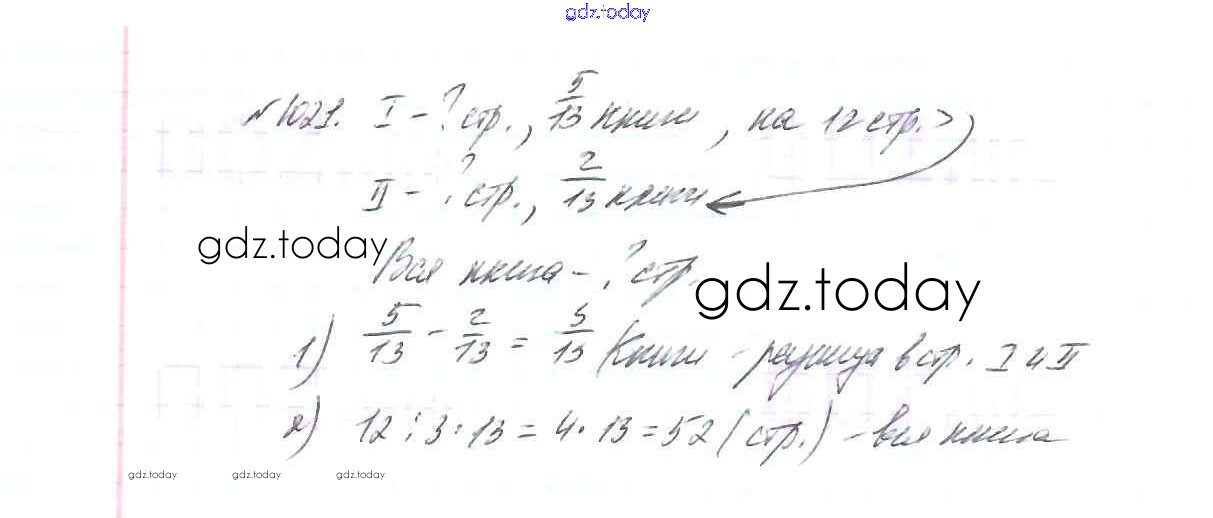 gdz.today
№1021. I - ? стр., 5/13 книги, на 12 стр. >
II - ? стр., 2/13 книги
gdz.today
Вся книга - ? стр.
gdz.today
1) 5/13 - 2/13 = 3/13 (книги - разница в стр. I и II
2) 12 : 3 · 13 = 4 · 13 = 52 (стр.) - вся книга
gdz.today gdz.today gdz.today